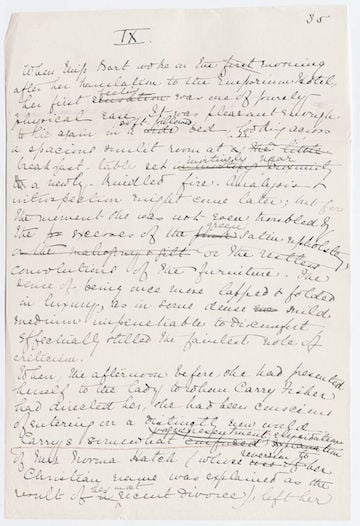 35
IX.
When Miss Bart woke on the first morning
after her translation to the Emporium Hotel,
her first feeling sensation was one of purely
physical ease. It was pleasant enough
to lie again in a pillowed wide bed, looking across
a spacious sunlit room at a
breakfast-table set invitingly near
to a newly-kindled fire. Analysis &
introspection might come later; but for
the moment she was not even troubled by
the excesses of the green satin upholstery,
or the mahogany & gilt or the restless
convolutions of the furniture. The
sense of being once more lapped & folded
in luxury, as in some dense mild
medium impenetrable to discomfort,
effectually stilled the faintest note of
criticism.
When, the afternoon before, she had presented
herself to the lady to whom Carry Fisher
had directed her, she had been conscious
of entering on a distinctly new world.
Carry's somewhat confused
of Mrs Norma Hatch (whose reversion to her
Christian name was explained as the
result of her most recent divorce), left her